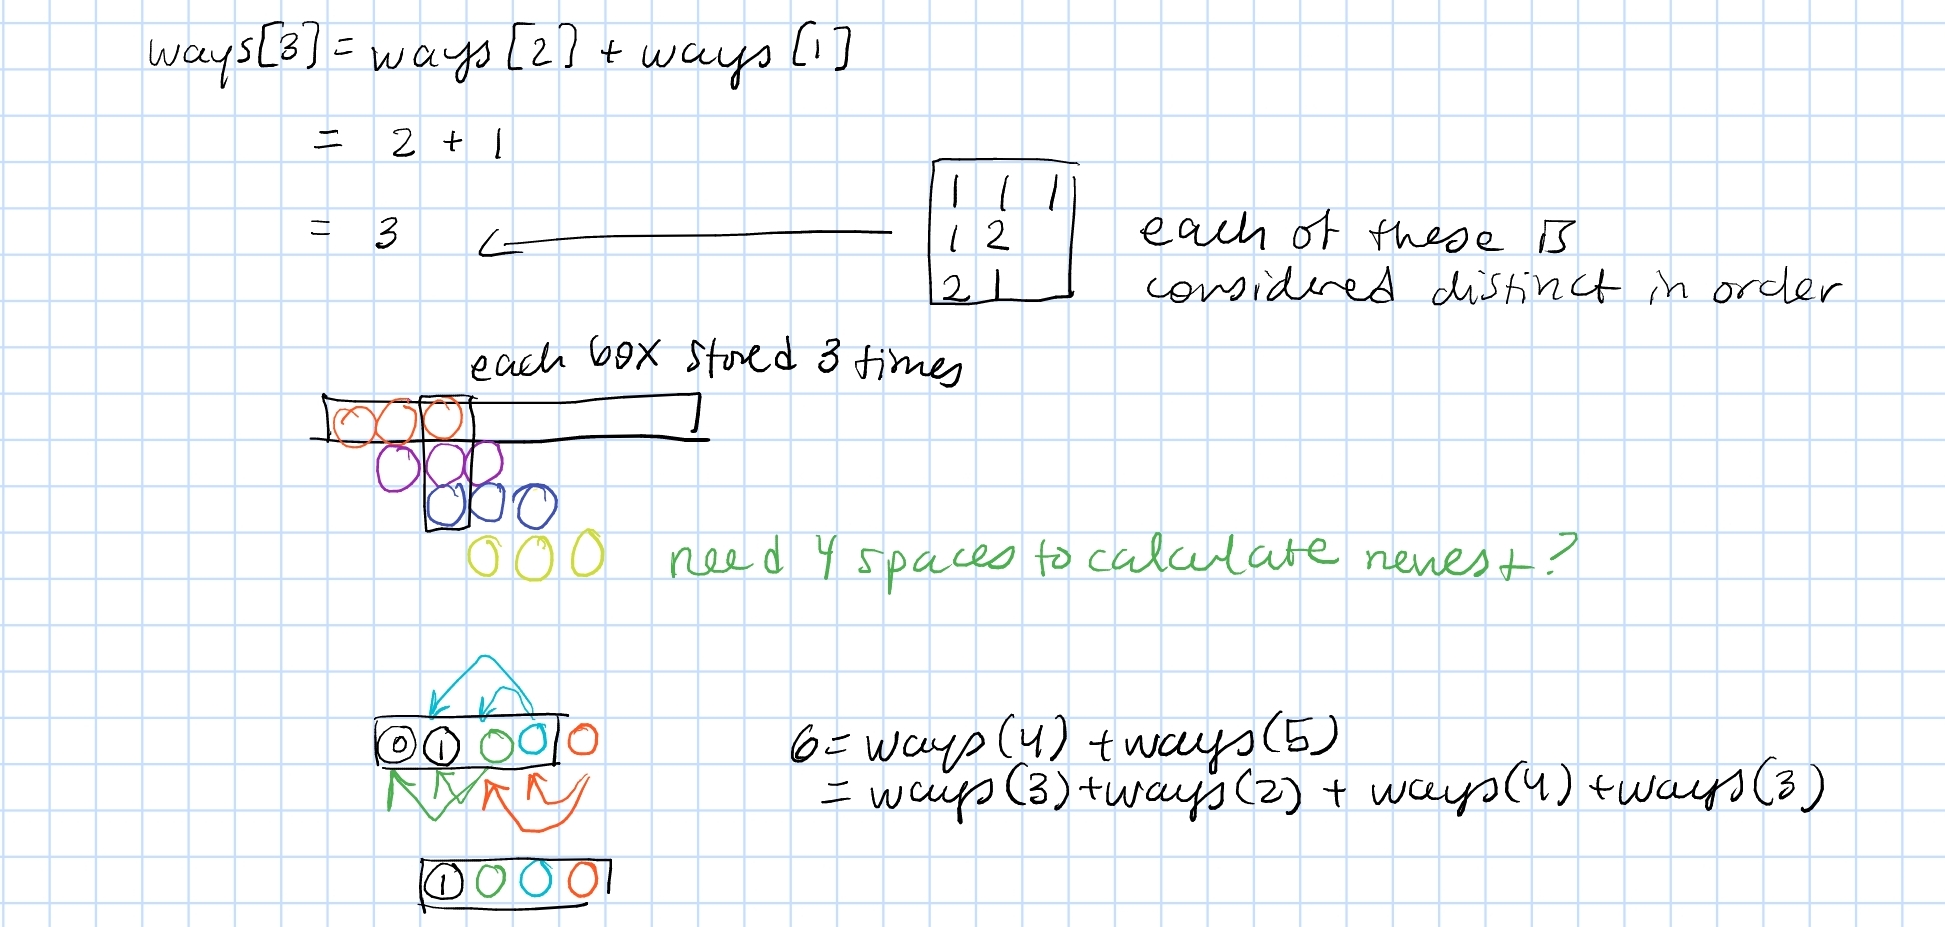 ways[3] = ways[2] + ways[1]
= 2 + 1
= 3
1 1 1
1 2
2 1
each of these is
considered distinct in order
each box stored 3 times
need 4 spaces to calculate newest?
0 1
6 = ways(4) + ways(5)
= ways(3) + ways(2) + ways(4) + ways(3)
1